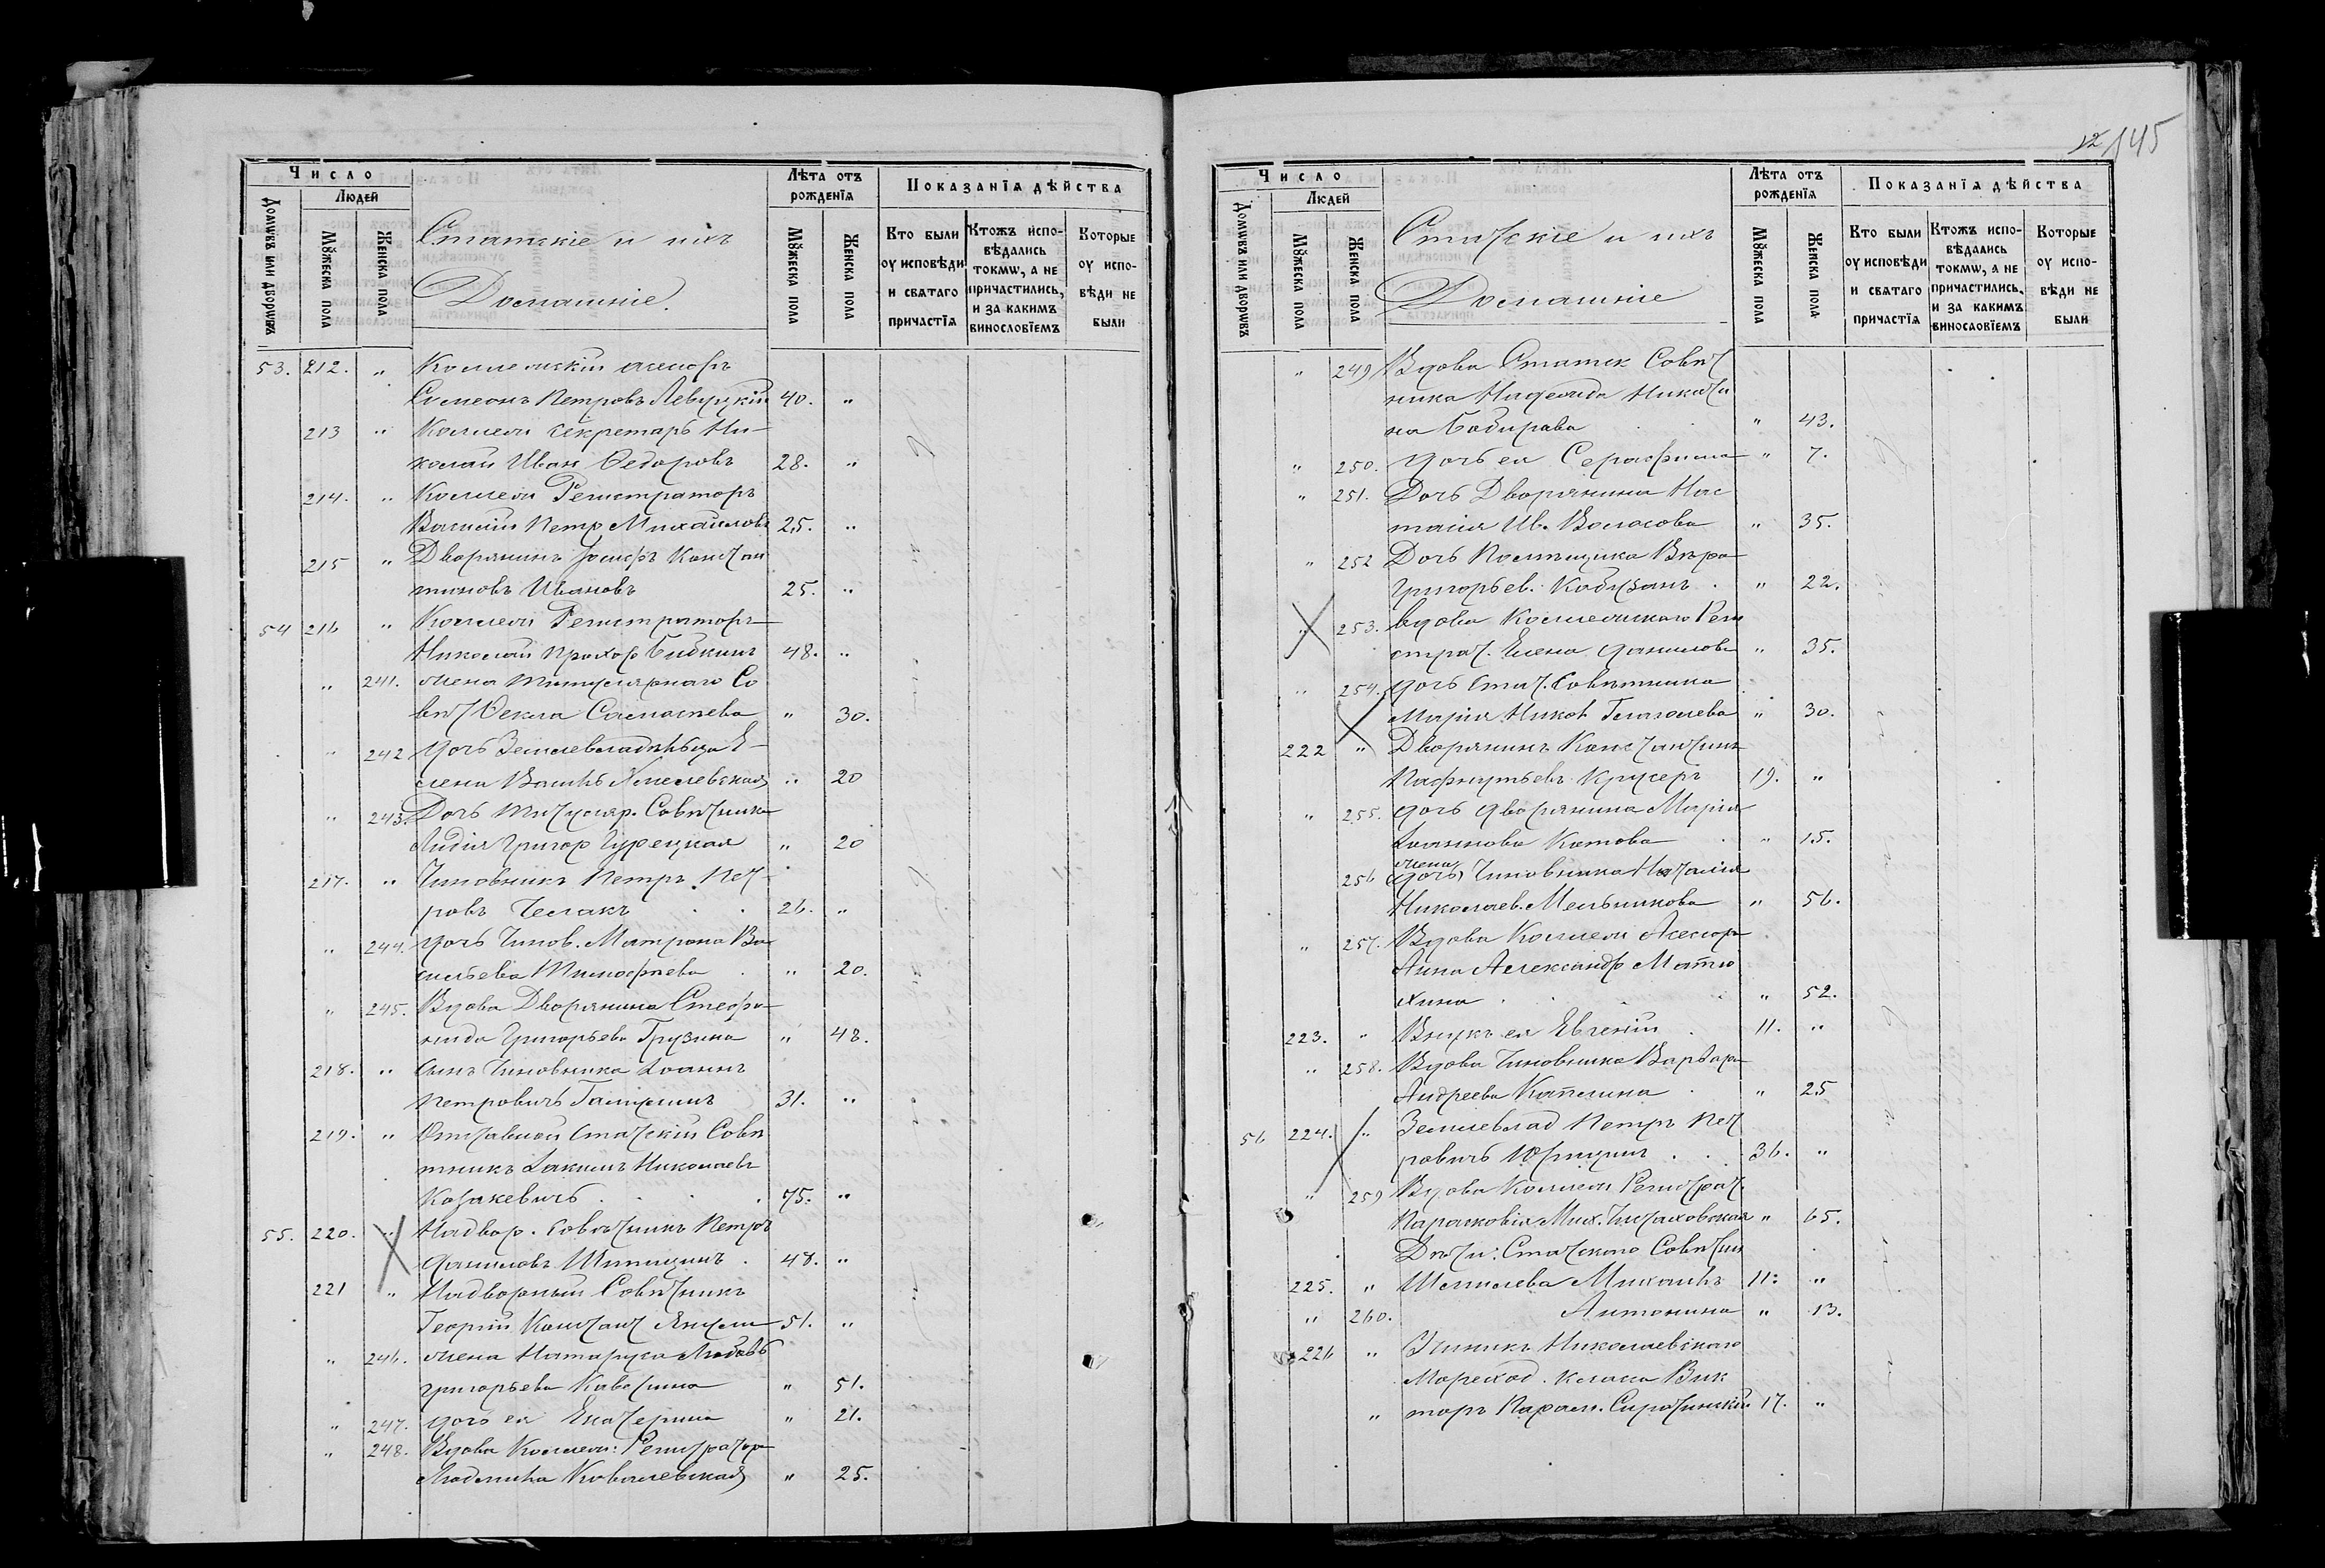 12 145
Число
Людей
Домѡвъ или дворѡвъ
Мꙋжеска пола
Женска пола
Статскіе и ихъ
Домашніе.
Лѣта отъ рожденїѧ
Мꙋжеска пола
Женска пола
Показанїѧ дѣйства
Кто были оу исповѣди и свѧтаго причастїѧ
Ктожъ исповѣдались токмѡ, а не причастились, и за какимъ винословїемъ
Которые оу исповѣди не были
53. 212. „ Коллежскій асессоръ
Симеонъ Петровъ Левицкій 40. „
213 „ Коллеж секретарь Ни-
колай Иван Ѳедоровъ 28. „
214. „ Коллеж Регистраторъ
Василій Петр Михайловъ 25. „
215 „ Дворянинъ Іосифъ Констан
тиновъ Ивановъ 25. „
54 216 „ Коллеж Регистраторъ
Николай Прохор Бидкинъ 48. „
„ 241. жена титулярнаго Со
вѣт Ѳекла 30.
„ 242 дочь Землевладѣльца Е-
лена Василь Хмелевская „ 20
„ 243. Дочь Титуляр. Совѣтника
Лидія Григор Гурецкая „ 20
217. „ Чиновникъ Петръ Пет
ровъ Челакъ 26. „
„ 244. дочь Чинов. Матрона Ва
сильева Тимофеева „ 20.
„ 245. Вдова Дворянина Стефа
нида Григорьева Грузина „ 48.
218. „ Сынъ Чиновника Іоаннъ
Петровичъ 31. „
219. „ Отставной Статскій Совѣ
тникъ Іакимъ Николаевъ
Козакевичъ 75. „
55. 220. „ Надвор. Совѣтникъ Петръ
Даниловъ Шипицинъ 48. „
221 „ Надворный Совѣтникъ
Георгій Констант 51. „
„ 246. жена Натаріуса Любовь
Григорьева „ 51.
„ 247. дочь ея Екатерина „ 21.
„ 248. Вдова Коллеж: Регистратор
Людмила Ковалевская „ 25.
Число
Людей
Домѡвъ или дворѡвъ
Мꙋжеска пола
Женска пола
Статскіе и ихъ
Домашніе
Лѣта отъ рожденїѧ
Мꙋжеска пола
Женска пола
Показанїѧ дѣйства
Кто были оу исповѣди и свѧтаго причастїѧ
Ктожъ исповѣдались токмѡ, а не причастились, и за какимъ винословїемъ
Которые оу исповѣди не были
„ 249 Вдова Статск Совѣт
ника Надежда Никити
на Бабирева „ 43.
„ 250. Дочь ея Серафима „ 7.
„ 251. Дочь Дворянина Нас
тасія Ив. Волосова „ 35.
„ 252 Дочь Помѣщика Вѣра
Григорьев. Кобизанъ „ 22.
„ 253. Вдова Коллежскаго Реги
страт. Елена Данилова „ 35.
„ 254. дочь Стат. Совѣтника
Марія Никол Глаголева „ 30.
222 „ Дворянинъ Константинъ
Пафнутьевъ Крузеръ 19. „
„ 255. дочь дворянина Марія
Іоаннова Котова „ 15.
жена
256 (дочь) Чиновника Наталія
Николаев. Мельникова „ 56.
„ 257. Вдова Коллеж Асессора
Анна Александр Матю
хина „ 52.
223. „ Внукъ ея Евгеній 11. „
„ 258. Вдова Чиновника Варвара
Андреева Каплина „ 25
56 224. „ Землевлад Петръ Пет
ровичъ Юрицинъ 36. „
„ 259 Вдова Коллеж Регистрат.
Парасковія Мих. „ 65.
Дѣти: Статскаго Совѣтни
225. „ Шемелева Михаилъ 11: „
„ 260. Антонина „ 13.
226 „ Ученикъ Николаевскаго
Мореход. класса Вик
„ торъ Сиротинскій 17. „